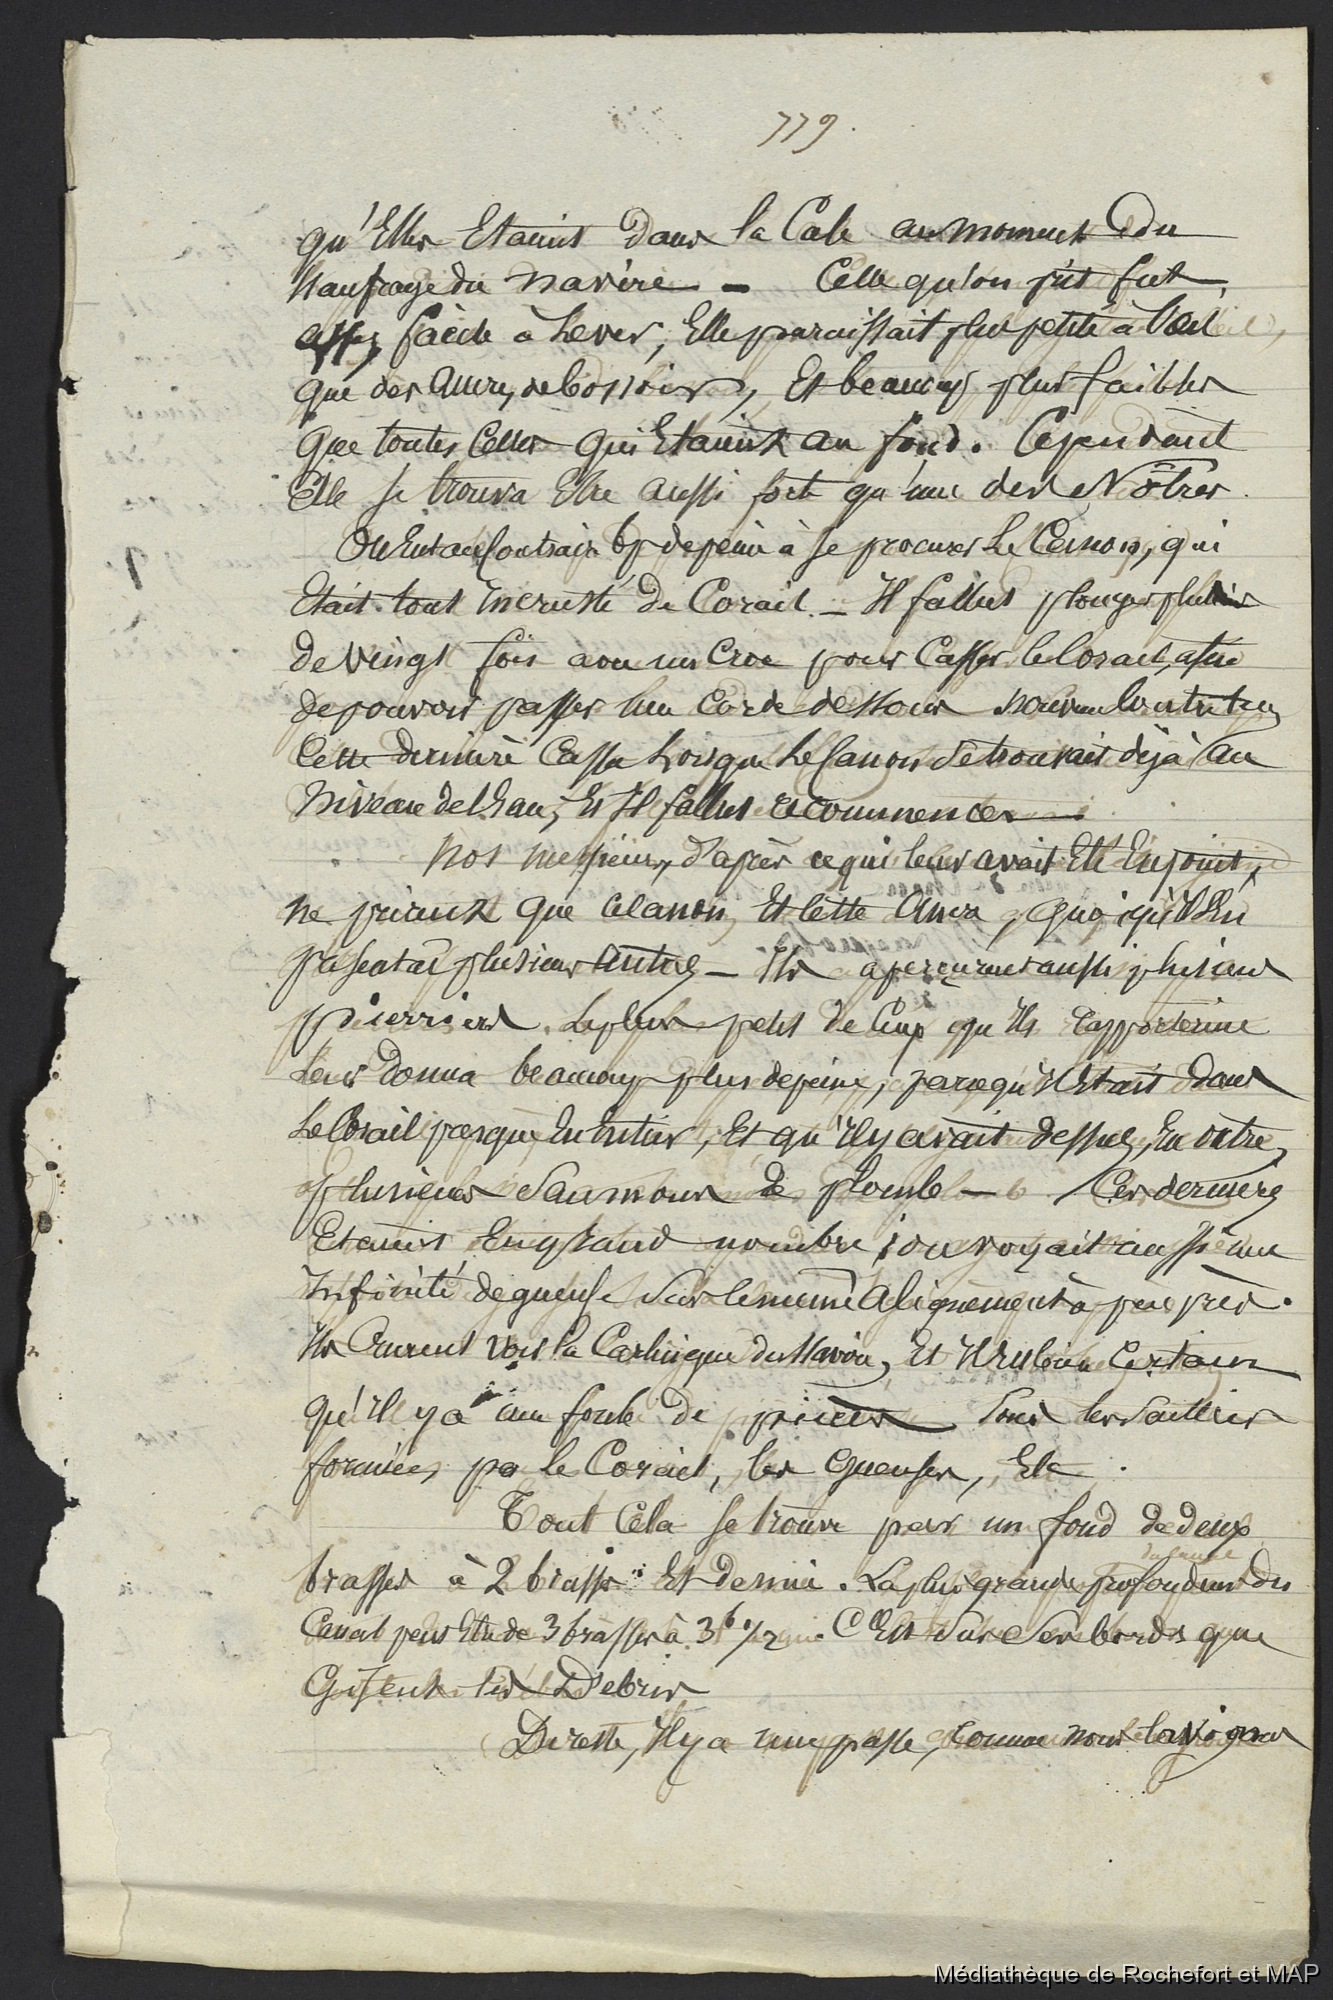 779.
qu'Elles Etaient dans la Cale au moment du
Naufrage du navire — Celle qu'on prit fut
assez facile à Lever, Elle paraissait plus petite à l'œil
que des Ancres de bossoir, Et beaucoup plus faibles
que toutes Celles qui Etaient au fond. Cependant
Elle se trouva Etre aussi forte qu'une des Nôtres.
On Eut au Contraire bp de peine à se procurer Le Canon, qui
Etait tout incrusté de Corail. — Il fallut plonger plus
de vingt fois avec un Croc pour Casser le Corail, afin
de pouvoir passer une Corde dessous
Cette dernière Cassa Lorsque Le Canon se trouvait déjà au
Niveau de l'Eau, Et Il fallut recommencer —
Nos messieurs, d'après ce qui leur avait Eté Enjoint,
ne prirent que ce Canon Et Cette Ancre, quoiqu'Il En
restat plusieurs Autres — Ils aperçurent aussi plusieurs
pierriers. Le plus petit de Ceux qu'Ils rapportèrent
Leur donna beaucoup plus de peine, parcequ'Il Etait dans
Le Corail presque En Entier, Et qu'Il y avait dessus, En outre,
plusieurs Saumons de plomb — Ces derniers
Etaient En grand nombre ; on voyait aussi une
Infinité de gueuses Sur le même Alignement à peu près.
Ils Crurent voir la Carlingue du Navire, Et Il Est bien Certain
qu'Il y a une foule de pièces Sous les Saillies
formées par le Corail, les gueuses, Etc.
Tout Cela se trouve par un fond de deux
brasses à 2 brasses Et demie. La plus grande profondeur du
Canal peut Etre de 3 brasses à 3b 1/2 C'Est Sur Ses bords que
Gisent les Débris
Du reste, Il y a une passe, Comme nous l'avions